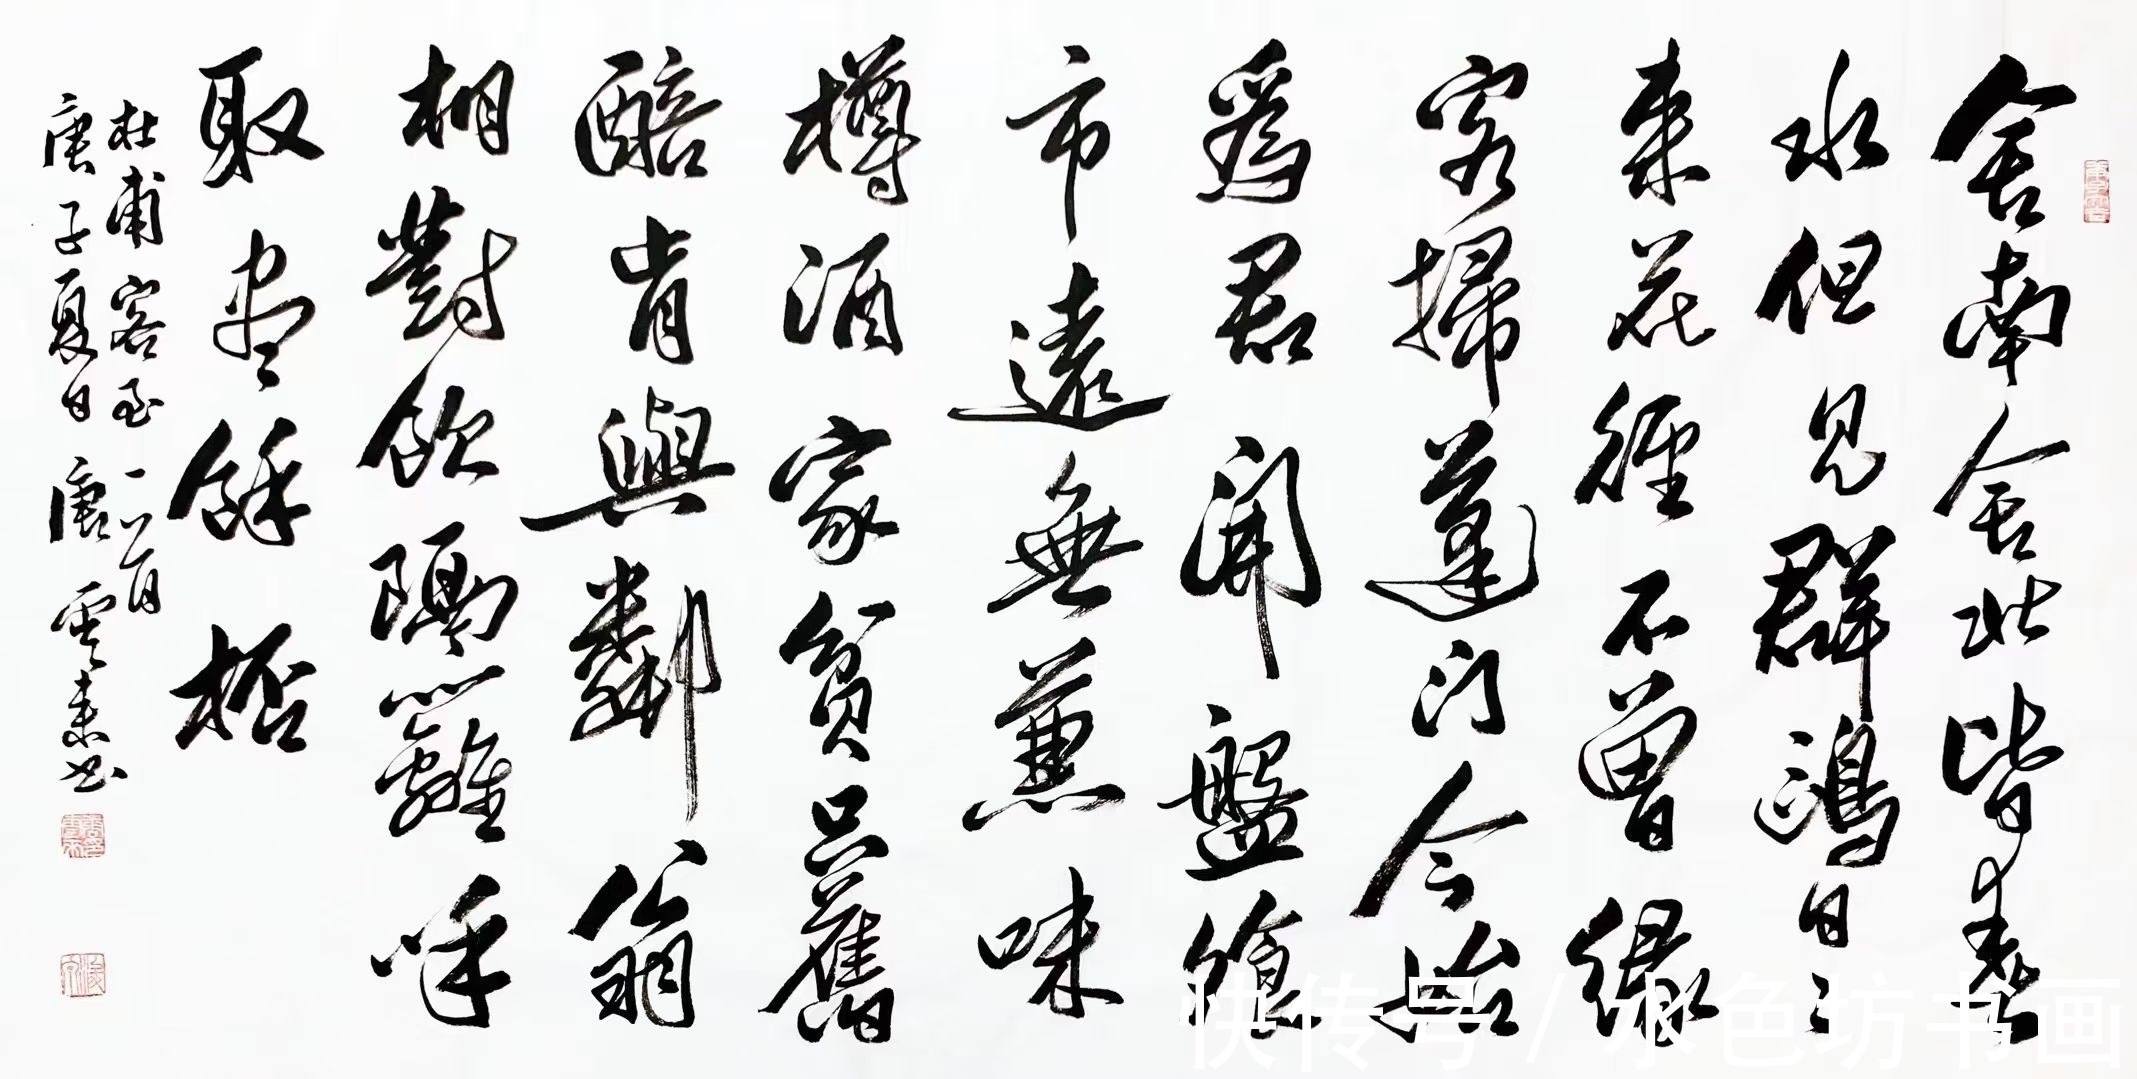 舍南舍北皆春
水但見群鷗日々
來花徑不曾緣
客掃蓬门今始
爲君開盤飧
市遠無兼味
樽酒家貧只舊
醅肯與鄰翁
相對飲隔籬呼
取盡餘桮
杜甫客至一首
庚子夏日 唐雲來书
快传号 / 水色坊书画